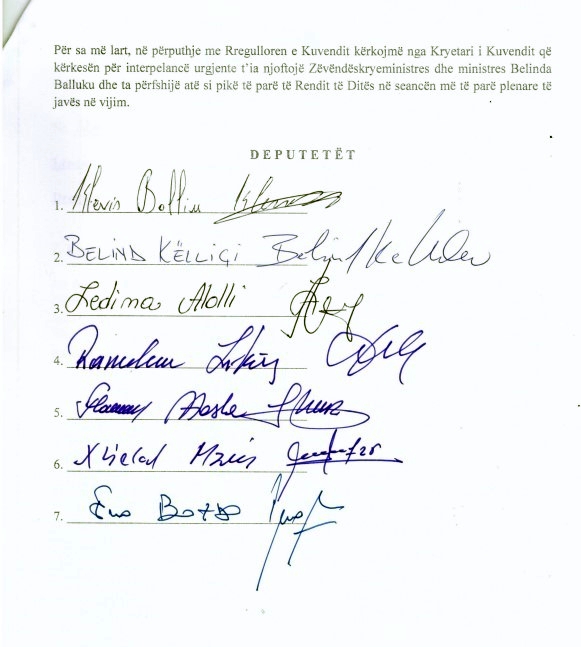 Për sa më lart, në përputhje me Rregulloren e Kuvendit kërkojmë nga Kryetari i Kuvendit që
kërkesën për interpelancë urgjente t’ia njoftojë Zëvëndëskryeministres dhe ministres Belinda
Balluku dhe ta përfshijë atë si pikë të parë të Rendit të Ditës në seancën më të parë plenare të
javës në vijim.
DEPUTETËT
1. Klevis Balliu
2. BELIND KËLLIÇI
3. Ledina Alolli
4.
5.
6. Xhelal
7.